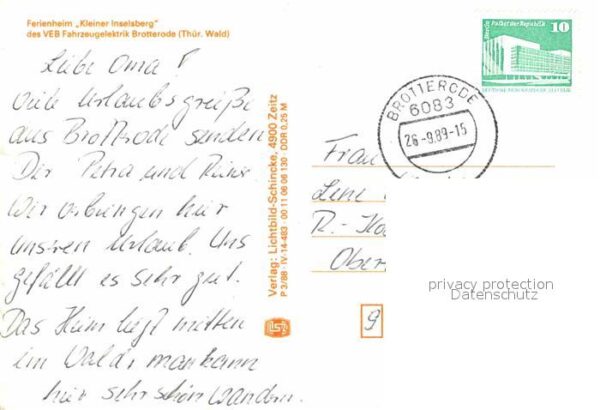 Ferienheim „Kleiner Inselsberg"
des VEB Fahrzeugelektrik Brotterode (Thür. Wald)
Liebe Oma!
viele Urlaubsgrüße
aus Brotterode senden
Dir Petra und
Wir verbringen hier
unseren Urlaub. Uns
gefällt es sehr gut.
Das Heim liegt mitten
im Wald, man kann
hier sehr schön wandern.
Verlag: Lichtbild-Schincke, 4900 Zeitz
P 3/88 · IV-14-483 · 00 11 06 06 130 · DDR 0,25 M
Berlin Palast der Republik
10
BROTTERODE
6083
26-9.89-15
Frau
Lene
R.-Ko
Ober
privacy protection
Datenschutz
9